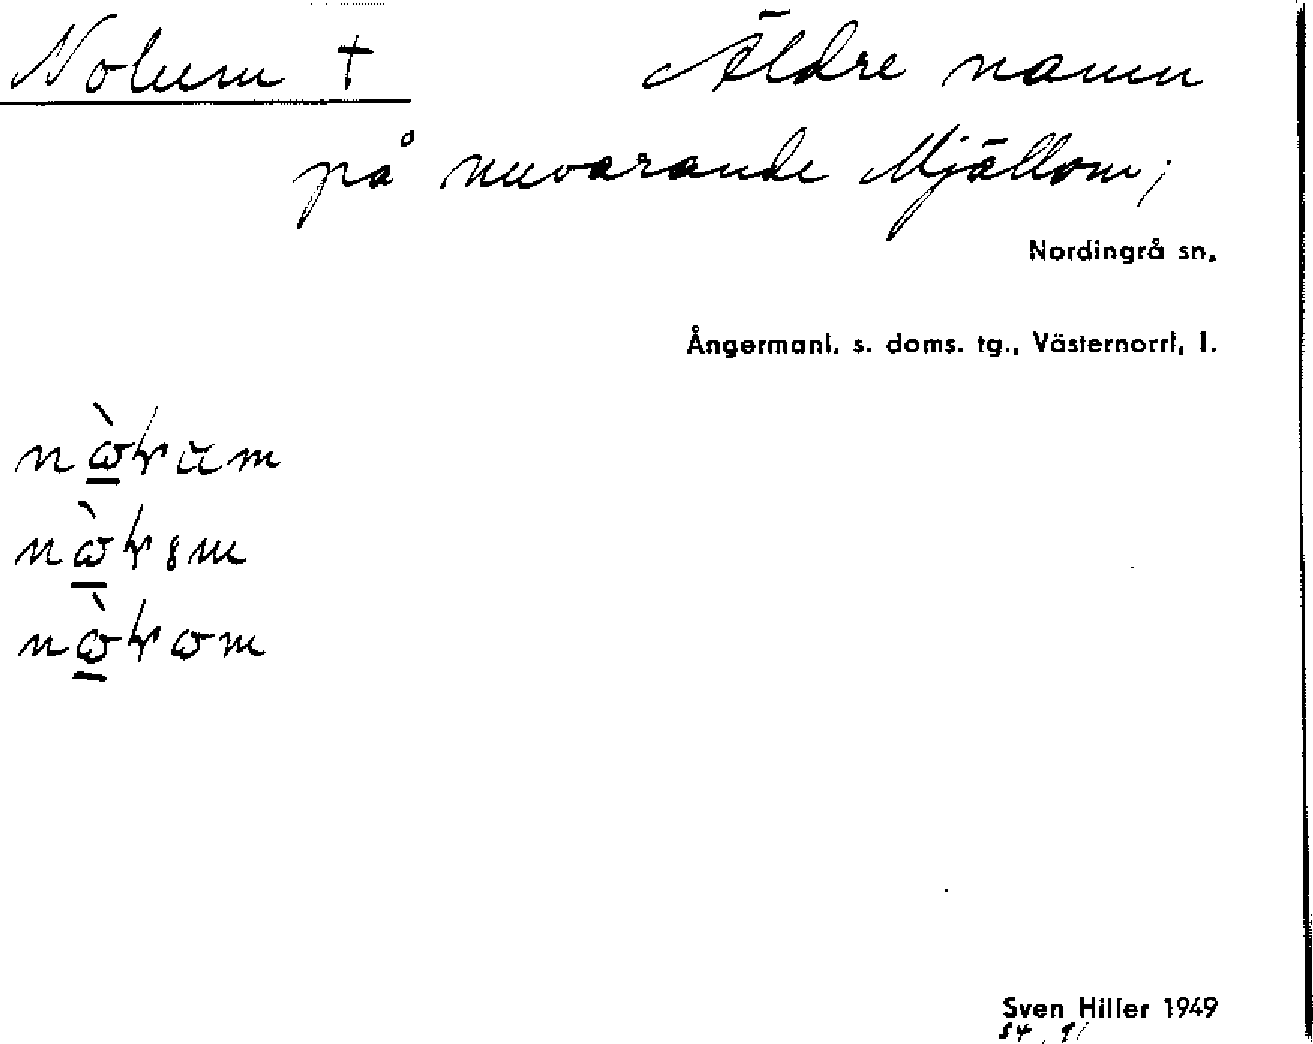 Nolum † Äldre namn
på nuvarande Mjällom;
Nordingrå sn.
Ångermanl. s. doms. tg., Västernorrl. l.
Sven Hiller 1949